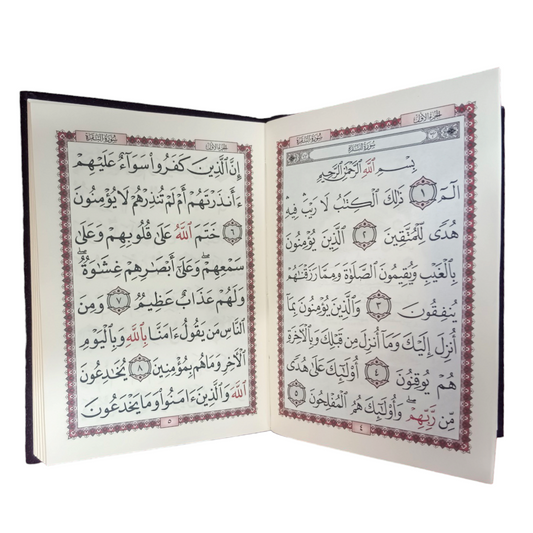 الجزء الأول
سورة البقرة
سورة البقرة
بِسْمِ اللَّهِ الرَّحْمَٰنِ الرَّحِيمِ
الٓمٓ ١ ذَٰلِكَ الْكِتَٰبُ لَا رَيْبَ ۛ فِيهِ ۛ
هُدًى لِّلْمُتَّقِينَ ٢ الَّذِينَ يُؤْمِنُونَ
بِالْغَيْبِ وَيُقِيمُونَ الصَّلَوٰةَ وَمِمَّا رَزَقْنَٰهُمْ
يُنفِقُونَ ٣ وَالَّذِينَ يُؤْمِنُونَ بِمَا
أُنزِلَ إِلَيْكَ وَمَا أُنزِلَ مِن قَبْلِكَ وَبِالْآخِرَةِ
هُمْ يُوقِنُونَ ٤ أُولَٰئِكَ عَلَىٰ هُدًى
مِّن رَّبِّهِمْ ۖ وَأُولَٰئِكَ هُمُ الْمُفْلِحُونَ ٥
٤
الجزء الأول
سورة البقرة
إِنَّ الَّذِينَ كَفَرُوا سَوَاءٌ عَلَيْهِمْ
ءَأَنذَرْتَهُمْ أَمْ لَمْ تُنذِرْهُمْ لَا يُؤْمِنُونَ
٦ خَتَمَ اللَّهُ عَلَىٰ قُلُوبِهِمْ وَعَلَىٰ
سَمْعِهِمْ ۖ وَعَلَىٰ أَبْصَٰرِهِمْ غِشَٰوَةٌ ۖ
وَلَهُمْ عَذَابٌ عَظِيمٌ ٧ وَمِنَ
النَّاسِ مَن يَقُولُ ءَامَنَّا بِاللَّهِ وَبِالْيَوْمِ
الْآخِرِ وَمَا هُم بِمُؤْمِنِينَ ٨ يُخَٰدِعُونَ
اللَّهَ وَالَّذِينَ ءَامَنُوا وَمَا يَخْدَعُونَ
٥